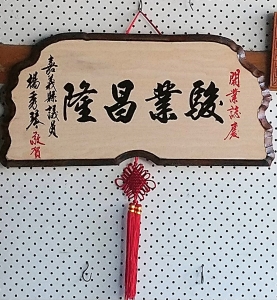 開業誌慶
駿業昌隆
嘉義縣議員
楊秀琴敬賀